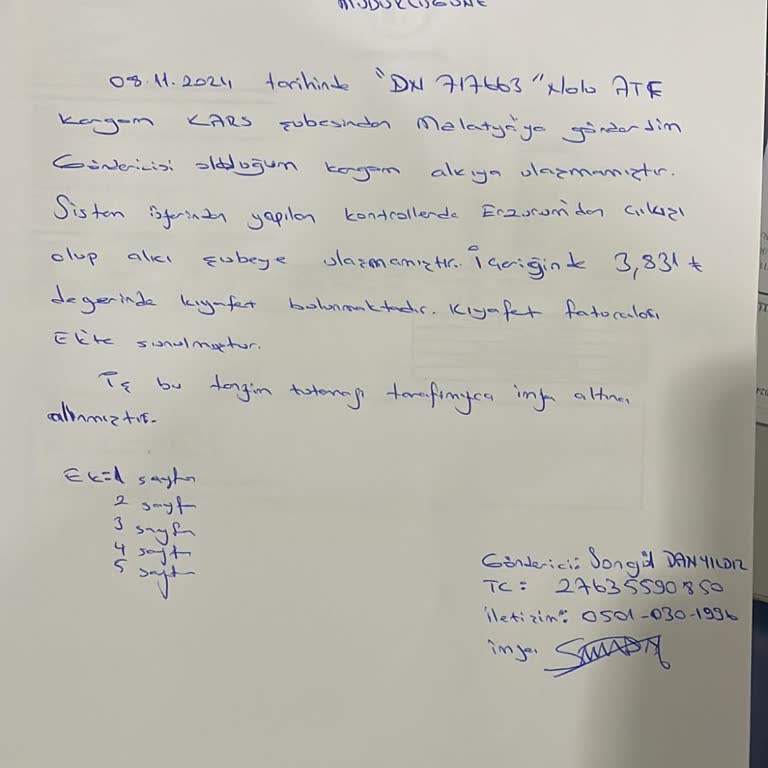 MÜDÜRLÜĞÜNE
08.11.2024 tarihinde "DN 717663" nolu ATF
kargom KARS şubesinden Malatya'ya gönderdim
Göndericisi olduğum kargom alıcıya ulaşmamıştır.
Sistem üzerinden yapılan kontrollerde Erzurum'dan çıkışı
olup alıcı şubeye ulaşmamıştır. İçeriğinde 3,831 ₺
değerinde kıyafet bulunmaktadır. Kıyafet faturası
Ekte sunulmuştur.
İş bu tazmin tutanağı tarafımızca imza altına
alınmıştır.
Ek=1 sayfa
2 sayfa
3 sayfa
4 sayfa
5 sayfa
Gönderici: Songül DANYILDIZ
TC: 27635590850
İletişim: 0501-030-1996
imza